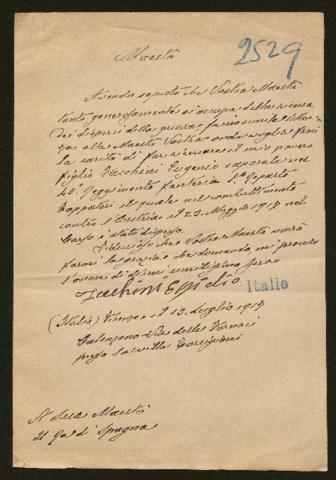 Maestà
2529
Avendo saputo che Vostra Maestà
tanto generosamente si occupa della ricerca
dei dispersi della guerra faccio umile istan-
za alla Maestà Vostra onde voglia farmi
la carità di far ricercare il mio povero
figlio Zacchini Eugenio caporale nel
40° Reggimento fanteria 1° Reparto
Zappatori il quale nel combattimento
contro l'Austria il 23 Maggio 1917 nel
Carso è stato disperso.
Fiducioso che Vostra Maestà vorrà
farmi la grazia che domando mi procuro
l'onore di dirmi umilissimo servo
Zachini Egidio
Italie
(Italia) Firenze il 13 Luglio 1917
Calenzano Via delle Fornaci
presso la villa Torrigiani
A Sua Maestà
Il Re di Spagna